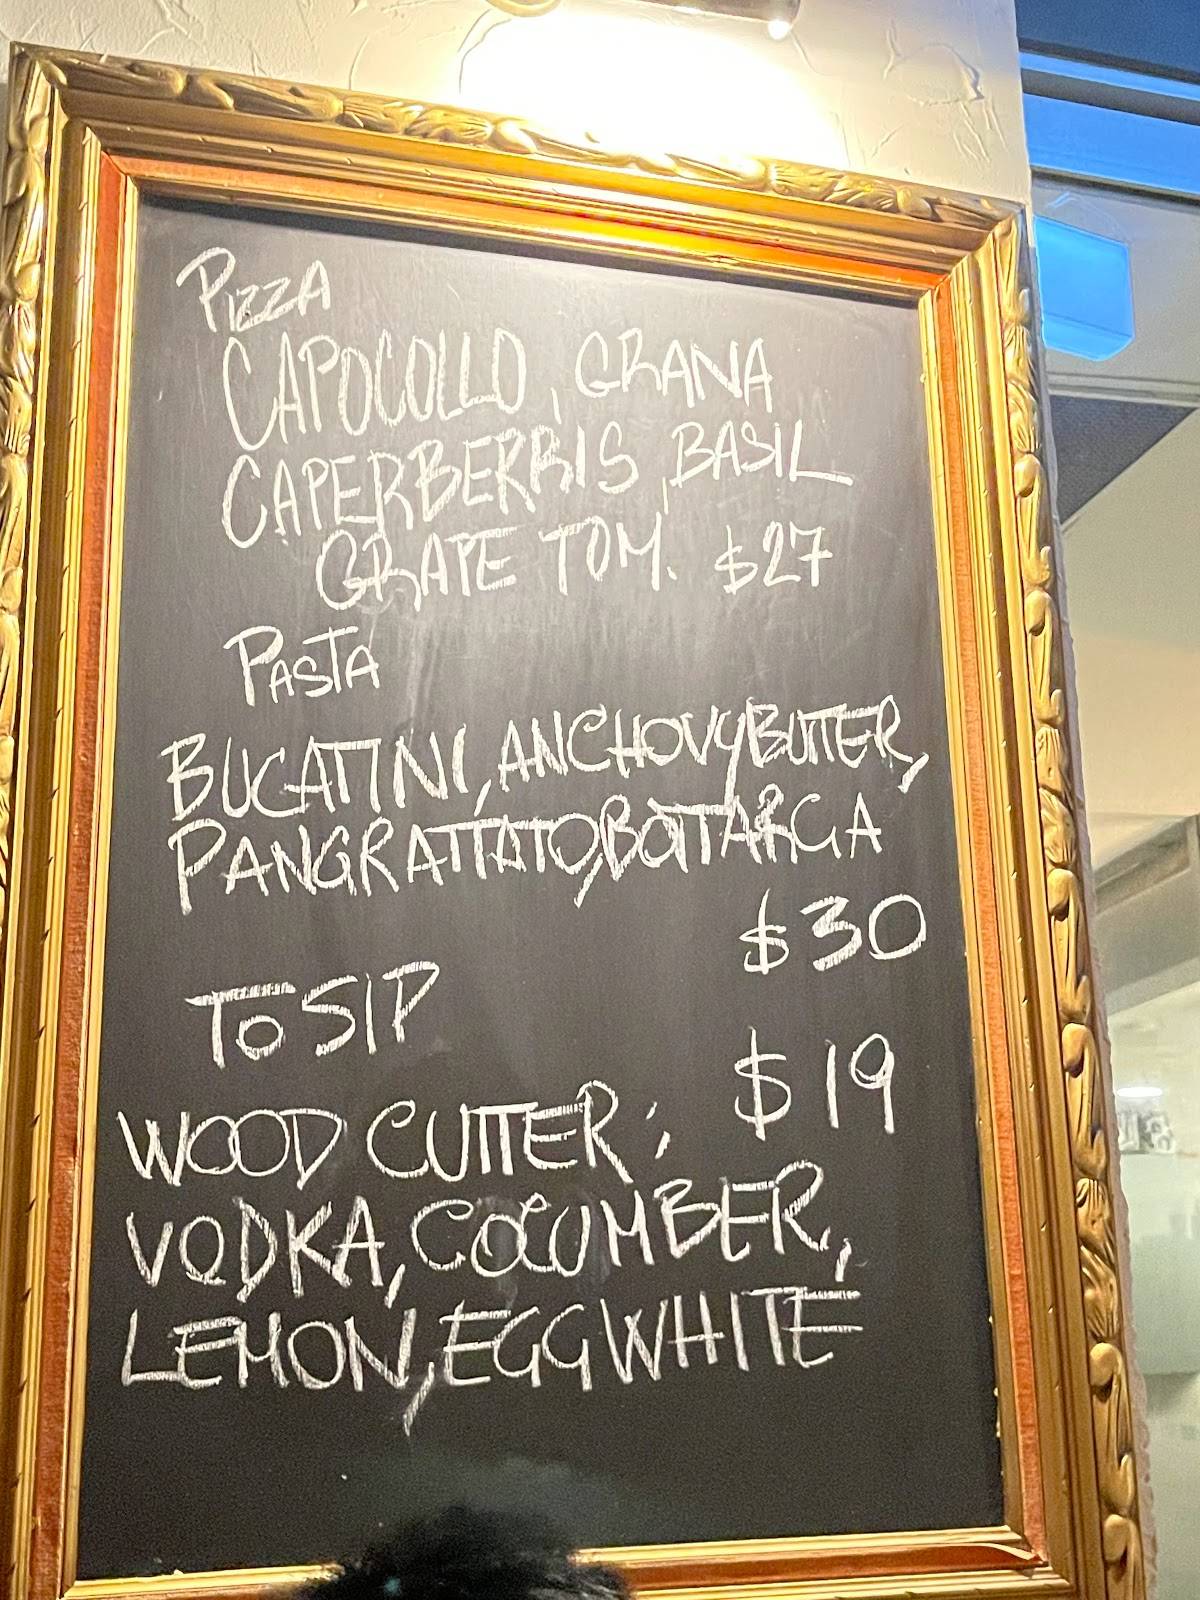 PIZZA
CAPOCOLLO, GRANA
CAPERBERRIS, BASIL
GRAPE TOM. $27
PASTA
BUCATINI, ANCHOVY BUTTER,
PANGRATTATO, BOTTARGA
$30
TO SIP
WOOD CUTTER: $19
VODKA, COCUMBER,
LEMON, EGG WHITE